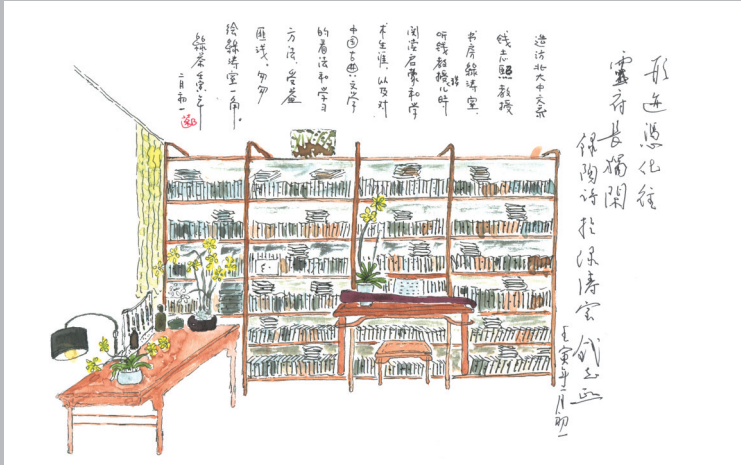 形迹憑化往
靈府長獨閑
録陶诗於绿涛室 钱志熙
壬寅年二月初一
造访北大中文系
钱志熙教授
书房綠涛室,
听钱教授儿时
阅读启蒙和学
术生涯,以及对
中国古典文学
的看法和学习
方法,受益
匪浅。匆匆
绘綠涛室一角。
綠茶壬寅年
二月初一